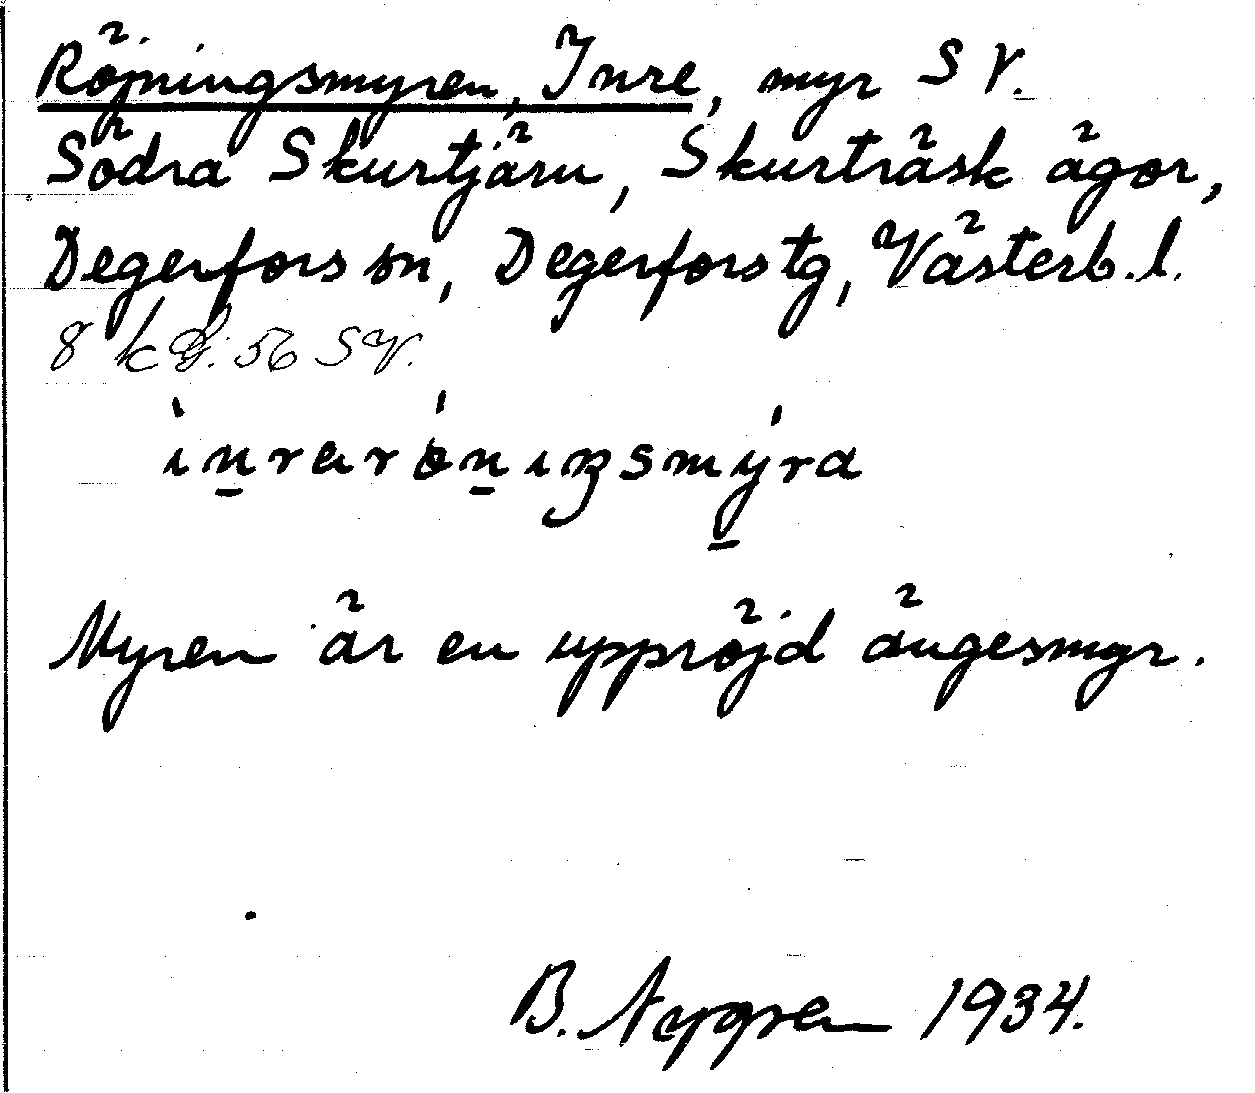 Röjningsmyren, Inre, myr S V.
Södra Skurtjärn, Skurträsk ägor,
Degerfors sn, Degerfors tg, Västerb. l.
8 k 56 SV.
inrarönıŋsmyra
Myren är en uppröjd ängesmyr.
B. Nygren 1934.